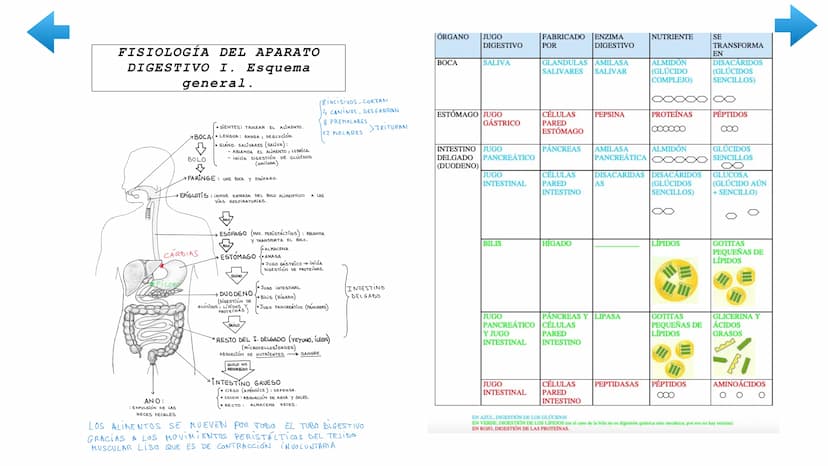 FISIOLOGÍA DEL APARATO
DIGESTIVO I. Esquema
general.
8 INCISIVOS_CORTAN
4 CANINOS_DESGARRAN
8 PREMOLARES
12 MOLARES > TRITURAN
BOCA
• DIENTES: TROCEAR EL ALIMENTO.
• LENGUA: AMASA, DEGLUCIÓN
• GLÁND. SALIVARES (SALIVA):
- ABLANDA EL ALIMENTO, LUBRICA.
- INICIA DIGESTIÓN DE GLÚCIDOS
BOLO
FARINGE: UNE BOCA Y ESÓFAGO.
EPIGLOTIS: IMPIDE ENTRADA DEL BOLO ALIMENTICIO A LAS
VÍAS RESPIRATORIAS.
BOLO
ESÓFAGO (MOV. PERISTÁLTICOS): EMPUJA
Y TRANSPORTA EL BOLO.
BOLO
CÁRDIAS
ESTÓMAGO
• ALMACENA
• AMASA
• JUGO GÁSTRICO → INICIA
DIGESTIÓN DE PROTEÍNAS.
QUIMO
DUODENO
(DIGESTIÓN DE
GLÚCIDOS, LÍPIDOS Y
PROTEÍNAS)
• JUGO INTESTINAL
• BILIS (HÍGADO)
• JUGO PANCREÁTICO (PÁNCREAS)
INTESTINO
DELGADO
QUILO
RESTO DEL I. DELGADO (YEYUNO, ÍLEON)
(MICROVELLOSIDADES)
ABSORCIÓN DE NUTRIENTES → SANGRE.
QUILO NO
ABSORBIDO
INTESTINO GRUESO
• CIEGO (APÉNDICE): DEFENSA.
• COLON: ABSORCIÓN DE AGUA Y SALES.
• RECTO: ALMACENA HECES.
ANO:
EXPULSIÓN DE LAS
HECES FECALES
LOS ALIMENTOS SE MUEVEN POR TODO EL TUBO DIGESTIVO
GRACIAS A LOS MOVIMIENTOS PERISTÁLTICOS DEL TEJIDO
MUSCULAR LISO QUE ES DE CONTRACCIÓN INVOLUNTARIA
ÓRGANO JUGO DIGESTIVO FABRICADO POR ENZIMA DIGESTIVO NUTRIENTE SE TRANSFORMA EN
BOCA SALIVA GLANDULAS SALIVARES AMILASA SALIVAR ALMIDÓN (GLÚCIDO COMPLEJO) DISACÁRIDOS (GLÚCIDOS SENCILLOS)
ESTÓMAGO JUGO GÁSTRICO CÉLULAS PARED ESTÓMAGO PEPSINA PROTEÍNAS PÉPTIDOS
INTESTINO DELGADO (DUODENO) JUGO PANCREÁTICO PÁNCREAS AMILASA PANCREÁTICA ALMIDÓN GLÚCIDOS SENCILLOS
JUGO INTESTINAL CÉLULAS PARED INTESTINO DISACARIDAS AS DISACÁRIDOS (GLÚCIDOS SENCILLOS) GLUCOSA (GLÚCIDO AÚN + SENCILLO)
BILIS HÍGADO LÍPIDOS GOTITAS PEQUEÑAS DE LÍPIDOS
JUGO PANCREÁTICO Y JUGO INTESTINAL PÁNCREAS Y CÉLULAS PARED INTESTINO LIPASA GOTITAS PEQUEÑAS DE LÍPIDOS GLICERINA Y ÁCIDOS GRASOS
JUGO INTESTINAL CÉLULAS PARED INTESTINO PEPTIDASAS PÉPTIDOS AMINOÁCIDOS
EN AZUL, DIGESTIÓN DE LOS GLÚCIDOS
EN VERDE, DIGESTIÓN DE LOS LÍPIDOS (en el caso de la bilis no es digestión química sino mecánica, por eso no hay enzima)
EN ROJO, DIGESTIÓN DE LAS PROTEÍNAS.